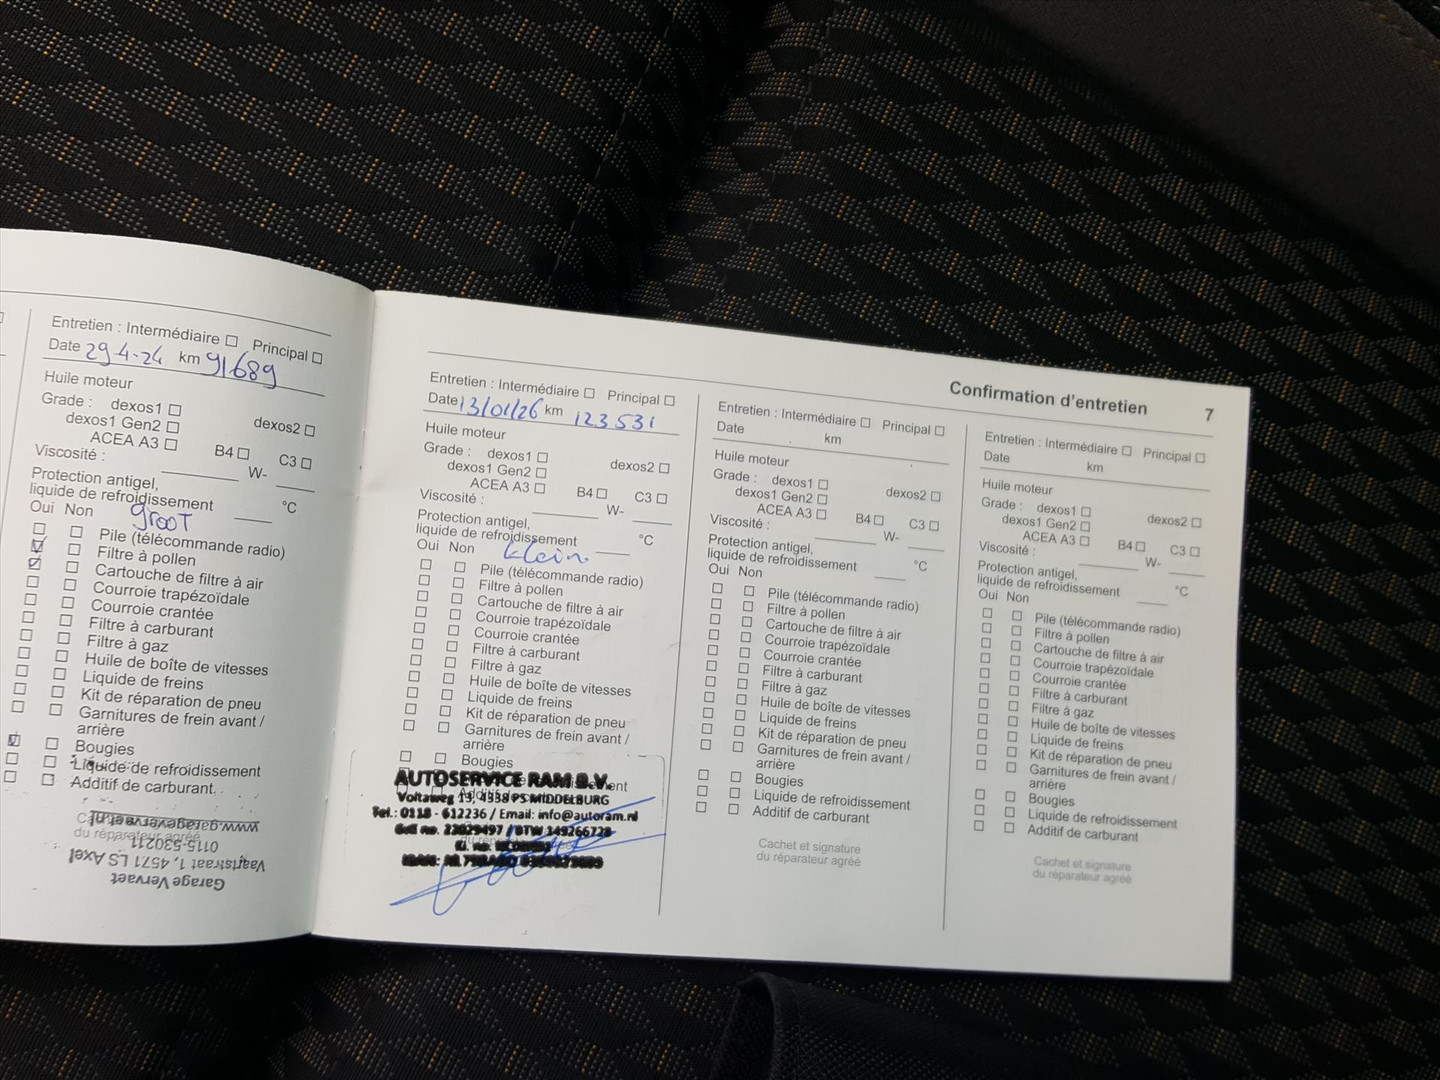 Entretien : Intermédiaire ☐ Principal ☐
Date 29-4-24 km 91689
Huile moteur
Grade : dexos1 ☐ dexos2 ☐
dexos1 Gen2 ☐
ACEA A3 ☐ B4 ☐ C3 ☐
Viscosité : W-
Protection antigel,
liquide de refroidissement °C
groot
Oui Non
☐ ☐ Pile (télécommande radio)
☑ ☐ Filtre à pollen
☑ ☐ Cartouche de filtre à air
☐ ☐ Courroie trapézoïdale
☐ ☐ Courroie crantée
☐ ☐ Filtre à carburant
☐ ☐ Filtre à gaz
☐ ☐ Huile de boîte de vitesses
☐ ☐ Liquide de freins
☐ ☐ Kit de réparation de pneu
☐ ☐ Garnitures de frein avant /
arrière
☑ ☐ Bougies
☐ ☐ Liquide de refroidissement
☐ ☐ Additif de carburant
du réparateur agréé
Garage Vervaet
Vaartstraat 1, 4571 LS Axel
0115-530211
www.garagevervaet.nl
Confirmation d'entretien 7
Entretien : Intermédiaire ☐ Principal ☐
Date 13/01/26 km 123531
Huile moteur
Grade : dexos1 ☐ dexos2 ☐
dexos1 Gen2 ☐
ACEA A3 ☐ B4 ☐ C3 ☐
Viscosité : W-
Protection antigel,
liquide de refroidissement °C
klein
Oui Non
☐ ☐ Pile (télécommande radio)
☐ ☐ Filtre à pollen
☐ ☐ Cartouche de filtre à air
☐ ☐ Courroie trapézoïdale
☐ ☐ Courroie crantée
☐ ☐ Filtre à carburant
☐ ☐ Filtre à gaz
☐ ☐ Huile de boîte de vitesses
☐ ☐ Liquide de freins
☐ ☐ Kit de réparation de pneu
☐ ☐ Garnitures de frein avant /
arrière
☐ ☐ Bougies
AUTOSERVICE RAM B.V.
Voltaweg 13, 4338 PS MIDDELBURG
Tel.: 0118 - 612236 / Email: info@autoram.nl
Entretien : Intermédiaire ☐ Principal ☐
Date km
Huile moteur
Grade : dexos1 ☐ dexos2 ☐
dexos1 Gen2 ☐
ACEA A3 ☐ B4 ☐ C3 ☐
Viscosité : W-
Protection antigel,
liquide de refroidissement °C
Oui Non
☐ ☐ Pile (télécommande radio)
☐ ☐ Filtre à pollen
☐ ☐ Cartouche de filtre à air
☐ ☐ Courroie trapézoïdale
☐ ☐ Courroie crantée
☐ ☐ Filtre à carburant
☐ ☐ Filtre à gaz
☐ ☐ Huile de boîte de vitesses
☐ ☐ Liquide de freins
☐ ☐ Kit de réparation de pneu
☐ ☐ Garnitures de frein avant /
arrière
☐ ☐ Bougies
☐ ☐ Liquide de refroidissement
☐ ☐ Additif de carburant
Cachet et signature
du réparateur agréé
Entretien : Intermédiaire ☐ Principal ☐
Date km
Huile moteur
Grade : dexos1 ☐ dexos2 ☐
dexos1 Gen2 ☐
ACEA A3 ☐ B4 ☐ C3 ☐
Viscosité : W-
Protection antigel,
liquide de refroidissement °C
Oui Non
☐ ☐ Pile (télécommande radio)
☐ ☐ Filtre à pollen
☐ ☐ Cartouche de filtre à air
☐ ☐ Courroie trapézoïdale
☐ ☐ Courroie crantée
☐ ☐ Filtre à carburant
☐ ☐ Filtre à gaz
☐ ☐ Huile de boîte de vitesses
☐ ☐ Liquide de freins
☐ ☐ Kit de réparation de pneu
☐ ☐ Garnitures de frein avant /
arrière
☐ ☐ Bougies
☐ ☐ Liquide de refroidissement
☐ ☐ Additif de carburant
Cachet et signature
du réparateur agréé